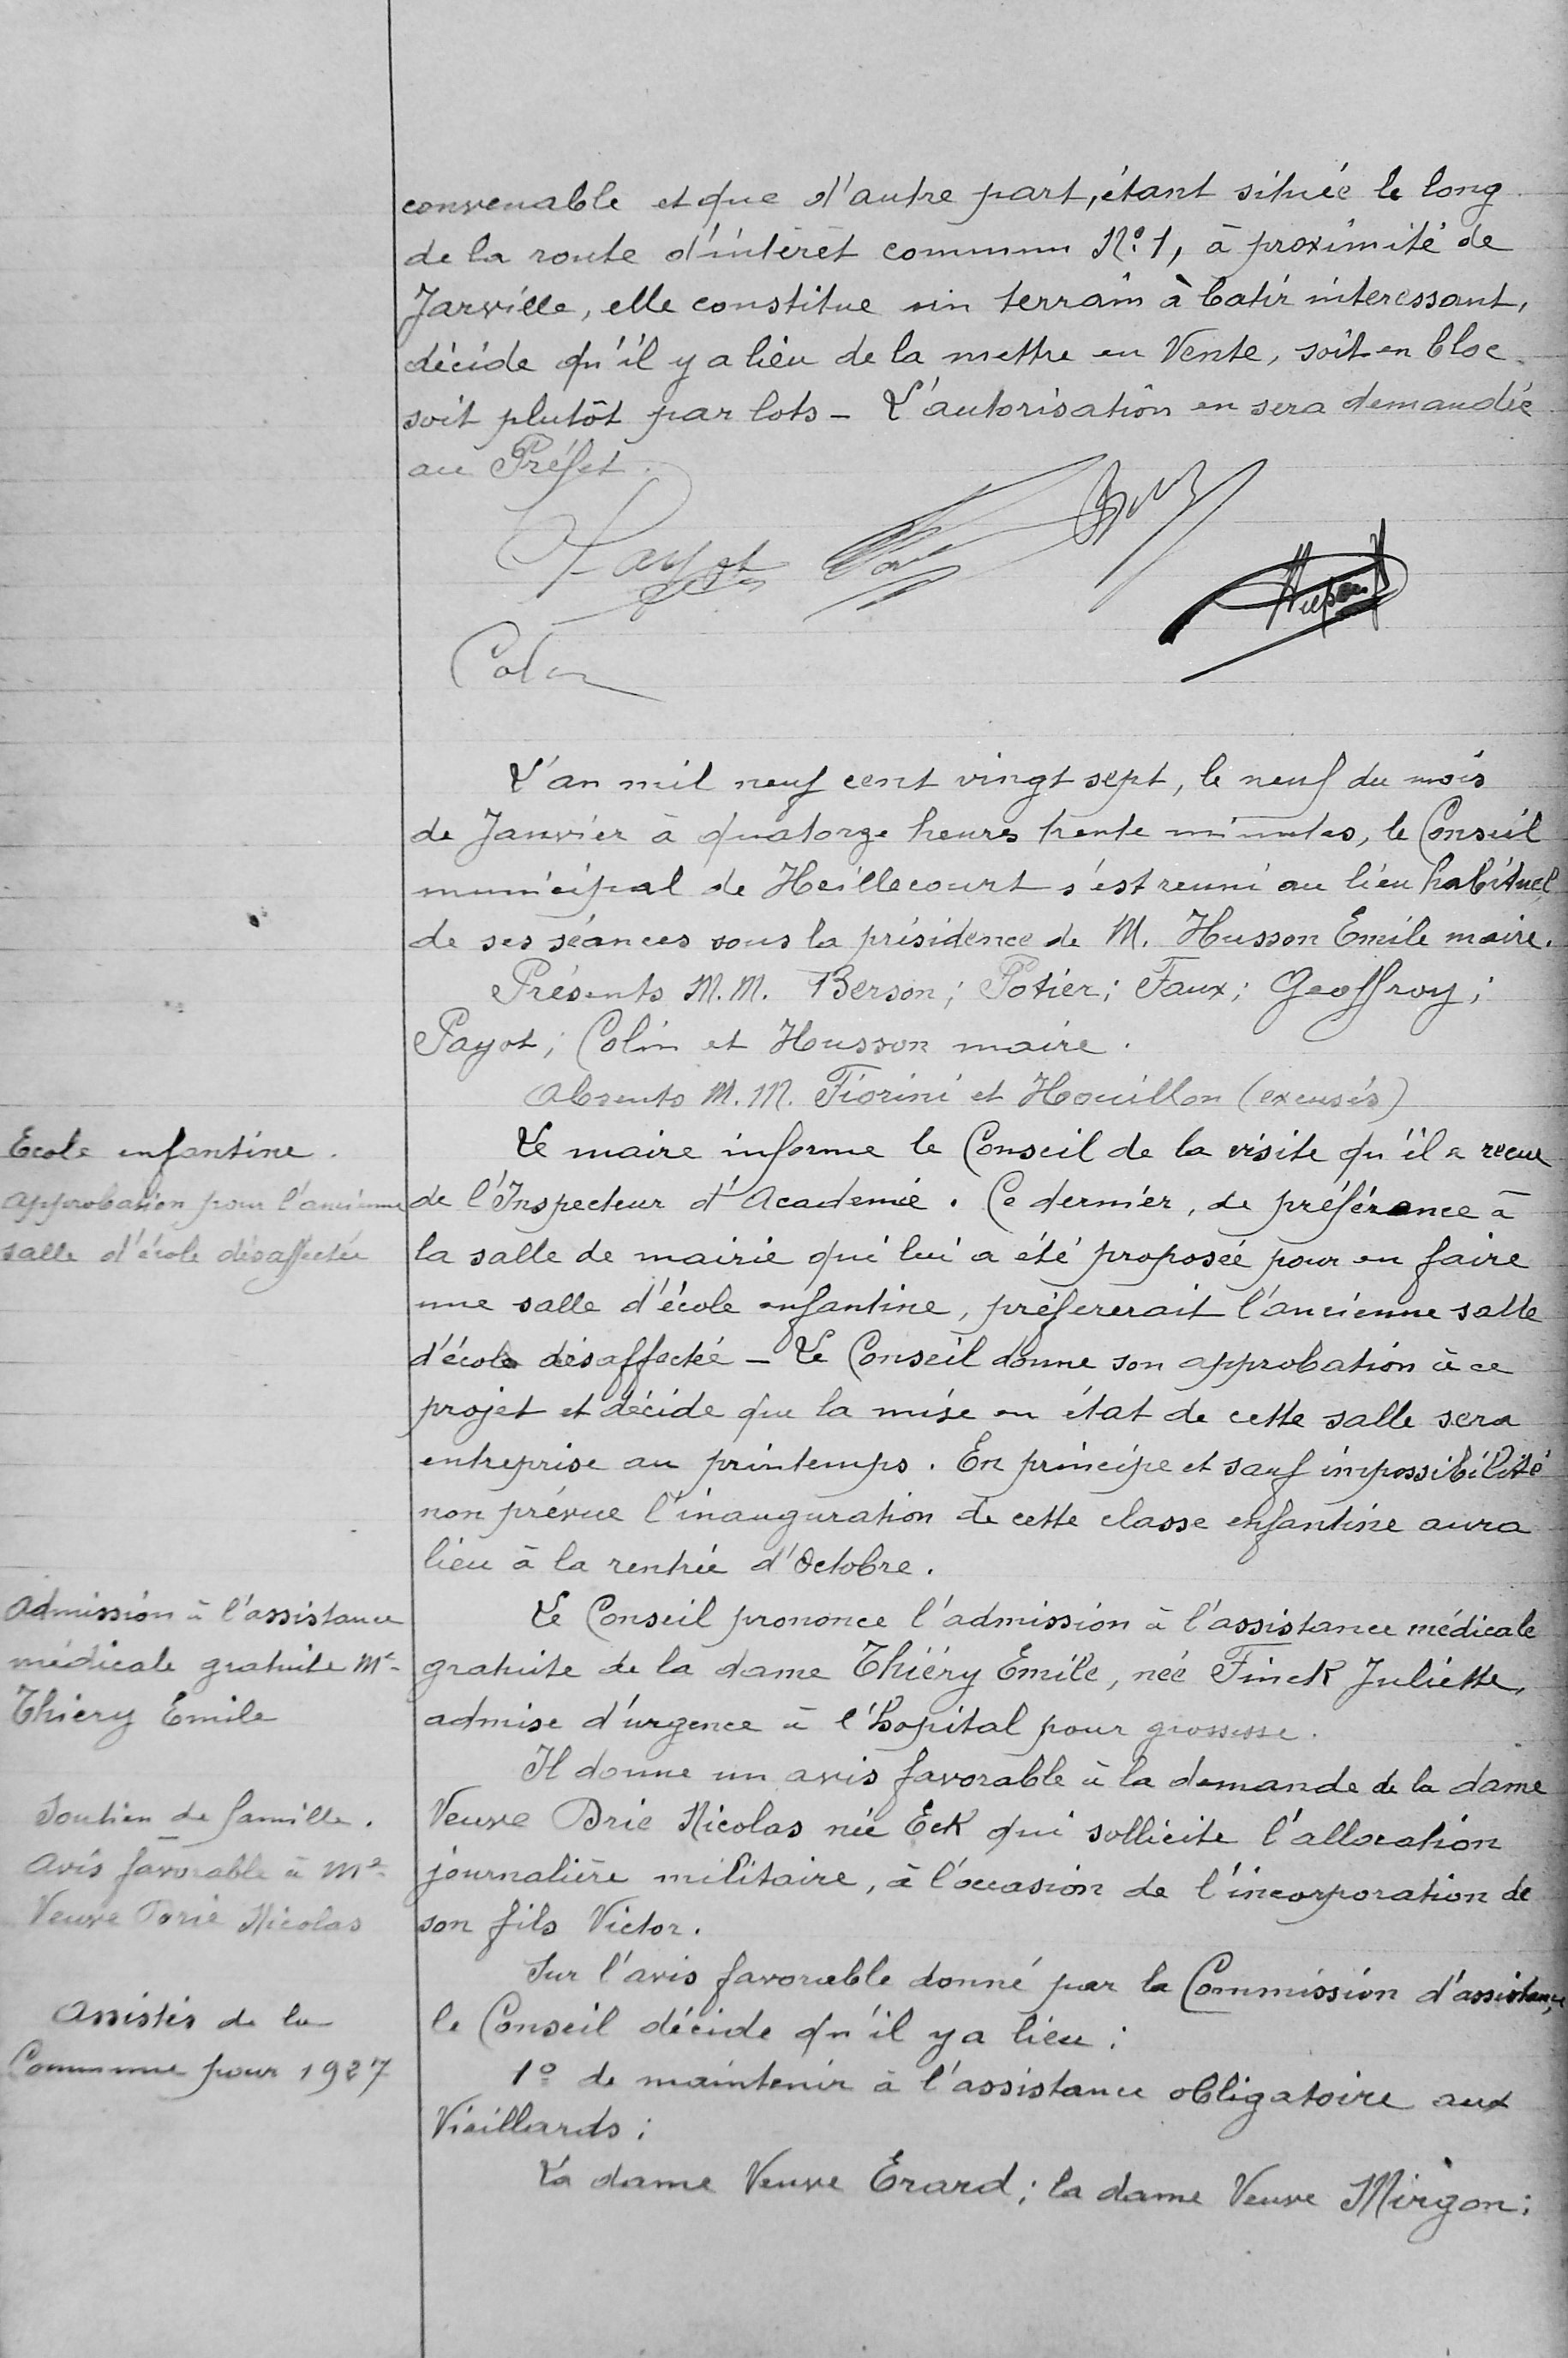 convenable et que d'autre part, étant située le long
de la route d'intérêt commun N° 1, à proximité de
Jarville, elle constitue un terrain à batir interessant,
décide qu'il y a lieu de la mettre en Vente, soit en bloc
soit plutôt par lots - L'autorisation en sera demandée
au Préfet.
Payot
Colin
L'an mil neuf cent vingt sept, le neuf du mois
de Janvier à quatorze heures trente minutes, le Conseil
municipal de Heillecourt s'est reuni au lieu habituel
de ses séances sous la présidence de M. Husson Emile maire.
Présents M.M. Berson; Potier; Faux; Geoffroy;
Payot; Colin et Husson maire.
Absents M.M. Fiorini et Houillon (excusés)
Ecole enfantine.
approbation pour l'ancienne
salle d'école désaffectée
Le maire informe le Conseil de la visite qu'il a recue
de l'Inspecteur d'Academie. Ce dernier, de préférence à
la salle de mairie qui lui a été proposée pour en faire
une salle d'école enfantine, préfererait l'ancienne salle
d'école désaffectée - Le Conseil donne son approbation à ce
projet et décide que la mise en état de cette salle sera
entreprise au printemps. En principe et sauf impossibilité
non prévue l'inauguration de cette classe enfantine aura
lieu à la rentrée d'Octobre.
Admission à l'assistance
médicale gratuite Me
Thiéry Emile
Le Conseil prononce l'admission à l'assistance médicale
gratuite de la dame Thiéry Emile, née Finck Juliette,
admise d'urgence à l'hopital pour grossesse.
Soutien de famille.
Avis favorable à Me
Veuve Brie Nicolas
Il donne un avis favorable à la demande de la dame
Veuve Brie Nicolas née Eck qui sollicite l'allocation
journalière militaire, à l'occasion de l'incorporation de
son fils Victor.
Assistés de la
Commune pour 1927
Sur l'avis favorable donné par la Commission d'assistance,
le Conseil décide qu'il y a lieu:
1° de maintenir à l'assistance obligatoire aux
Vieillards:
La dame Veuve Erard; la dame Veuve Mirgon;